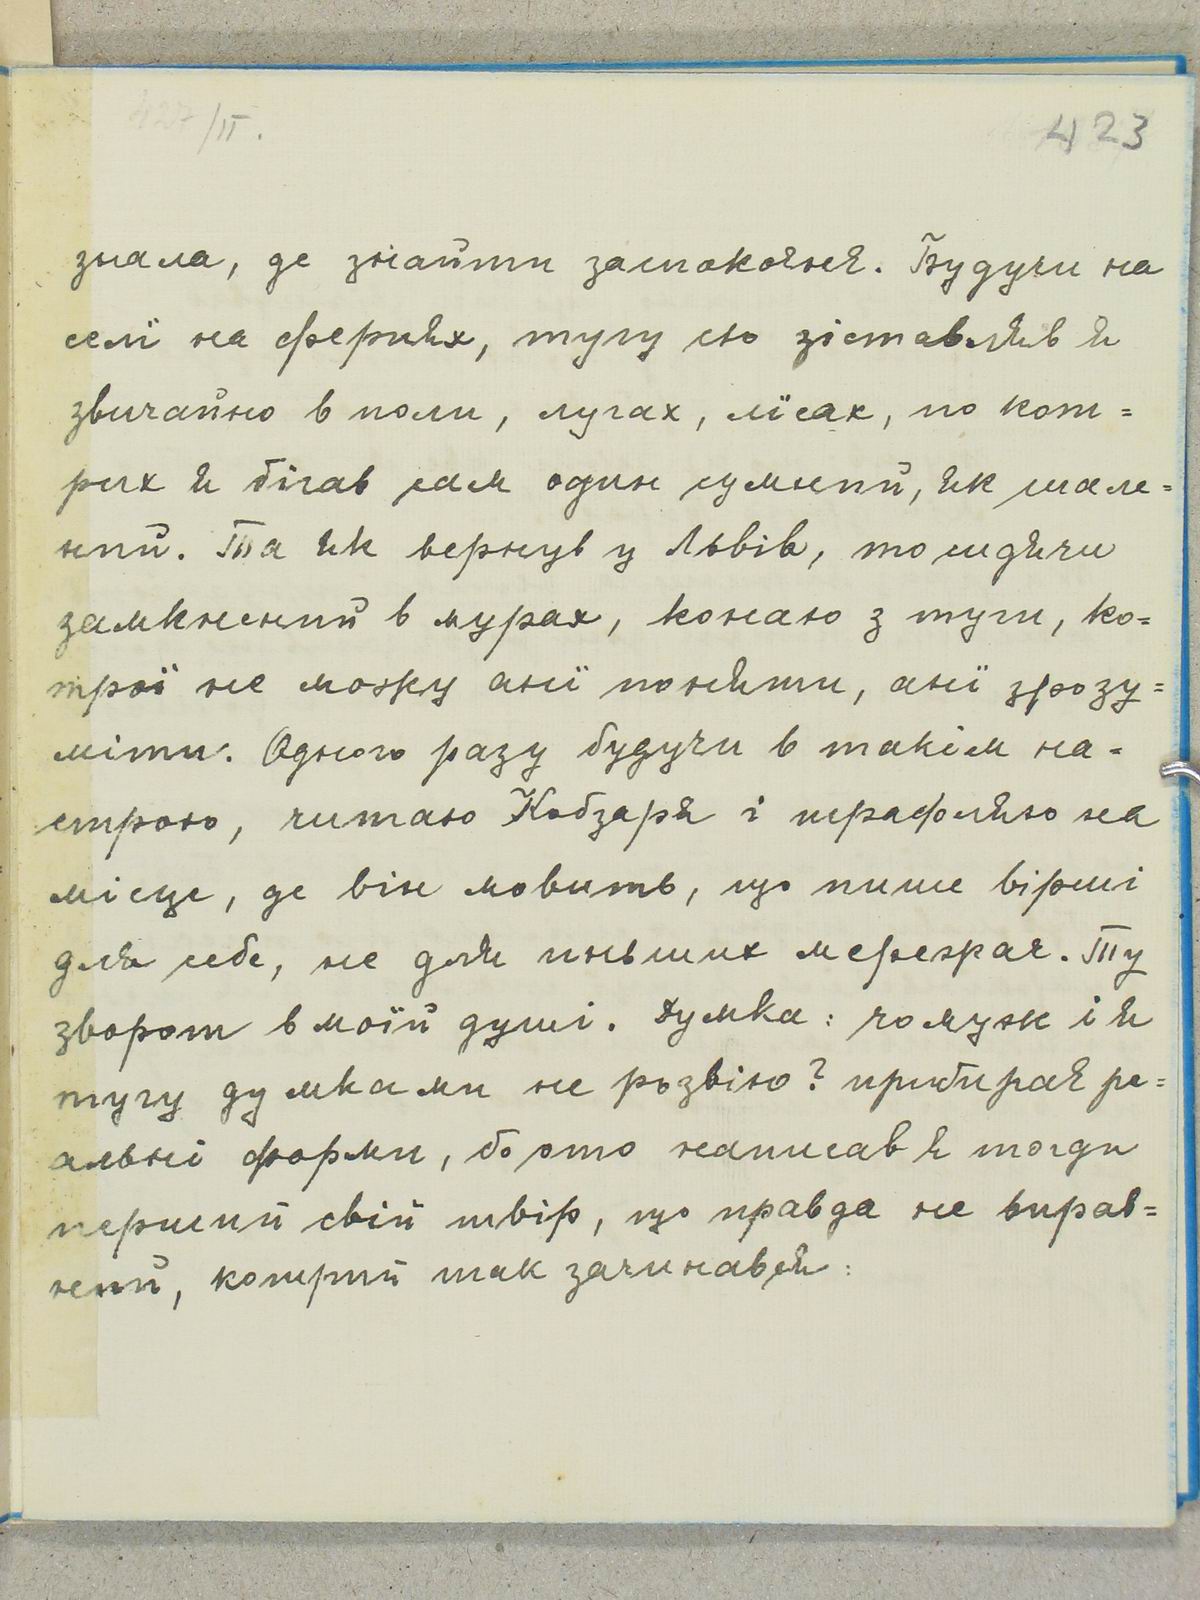 /II.
423
знала, де знайти заспокоєнє. Будучи на
селї на ферпях, тугу сю зіставляв я
звичайно в поли, лугах, лїсах, по кот=
рих я бігав сам один сумний, як шале=
ний. Та як вернув у Львів, то сидячи
замкнений в мурах, конаю з туги, ко=
трої не можу анї поняти, анї зрозу=
міти. Одного разу будучи в такім на=
строю, читаю Кобзаря і трафляю на
місце, де він мовить, що пише вірші
для себе, не для иньших мережає. Ту
зворот в моїй душі. Думка: чомуж і я
тугу думками не розвію? прибирає ре=
альні форми, бо ото написав я тогди
перший свій твір, що правда не вправ=
ний, котрий так зачинав ся: